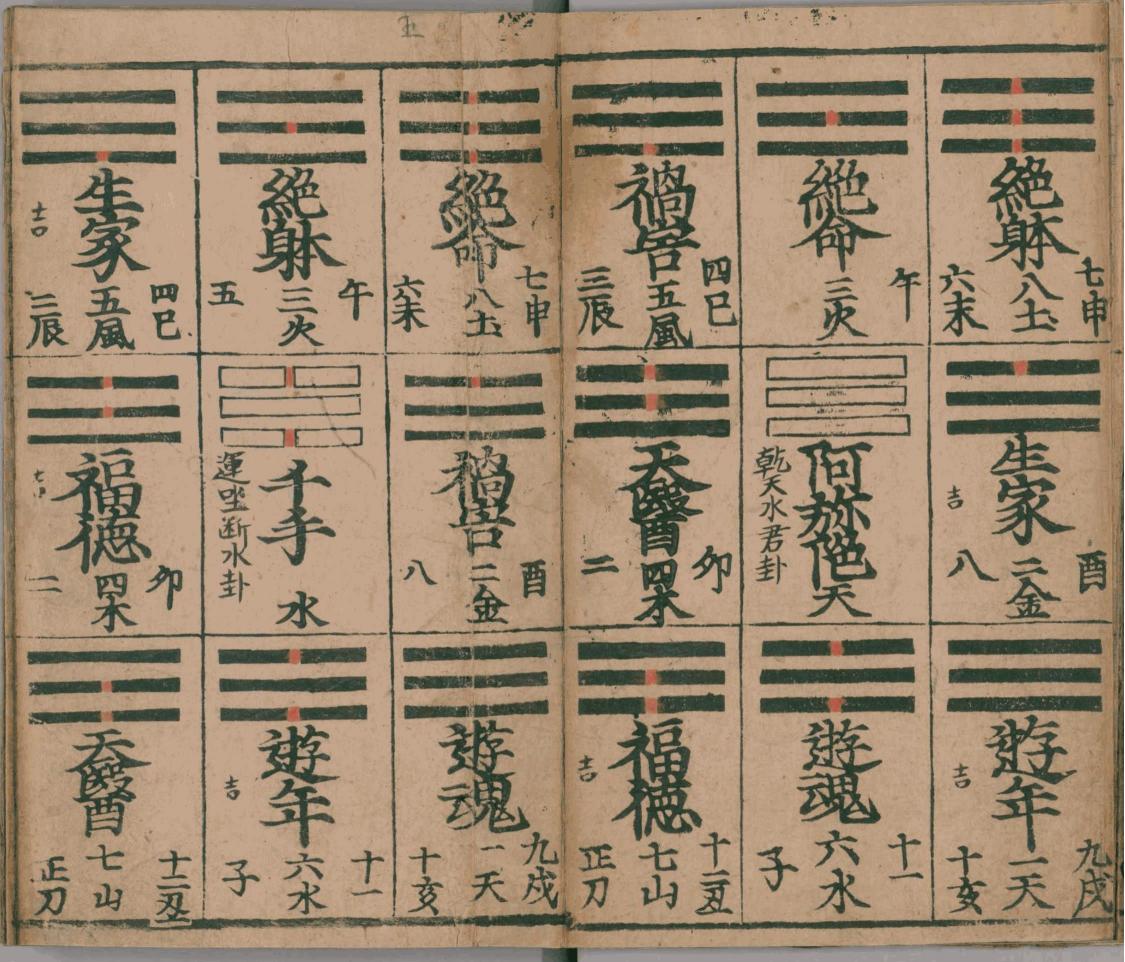 五
絶躰
八土
七申
六未
絶命
三火
午
禍害
五風
四巳
三辰
生家
二金
酉
八
吉
阿弥陀
天
乾天水君卦
天醫
四木
卯
二
遊年
一天
九戌
十亥
吉
遊魂
六水
十一
子
福徳
七山
十二丑
正
吉
絶命
八土
七申
六未
絶躰
三火
午
五
生家
五風
四巳
三辰
吉
禍害
二金
酉
八
千手
水
運坐断水卦
福徳
四木
卯
二
吉
遊魂
一天
九戌
十亥
遊年
六水
十一
子
吉
天醫
七山
十二丑
正